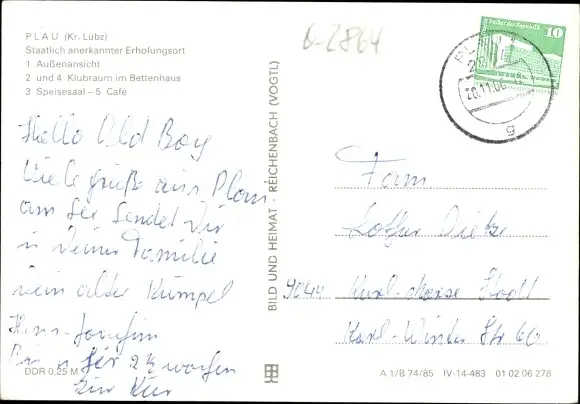 PLAU (Kr. Lübz)
Staatlich anerkannter Erholungsort
1 Außenansicht
2 und 4 Klubraum im Bettenhaus
3 Speisesaal – 5 Café
Hallo Old Boy
Viele grüße aus Plau
am See Sendet Dir
u Deiner Familie
Dein alter Kumpel
Hans-Joachim
Bin für 2½ wochen
zur Kur
DDR 0,25 M
BILD UND HEIMAT · REICHENBACH (VOGTL)
6-2864
Palast der Republik 10
PLAU
28.11.86
g
Fam
Lothar Dietze
9044 Karl-Marx Stadt
Karl-Winter Str 60
A 1/B 74/85 IV-14-483 01 02 06 278